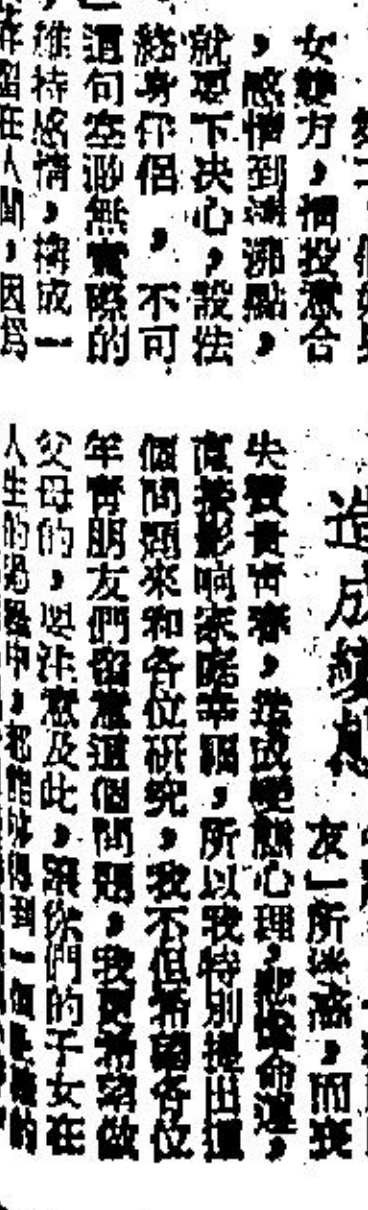 女雙方，情投意合
，感情到達沸點，
就要下决心，設法
終身伴侶，不可
這句空泛無實際的
維持感情，搆成一
留在人間，因爲
造成變態
友」所迷惑，而喪
失寶貴靑春，造成變態心理，悲慘命運，
直接影响家庭幸福，所以我特別提出這
個問題來和各位研究，我不但希望各位
年靑朋友們留意這個問題，我更希望做
父母的，要注意及此，讓你們的子女在
人生的過程中，都能夠得到一個的